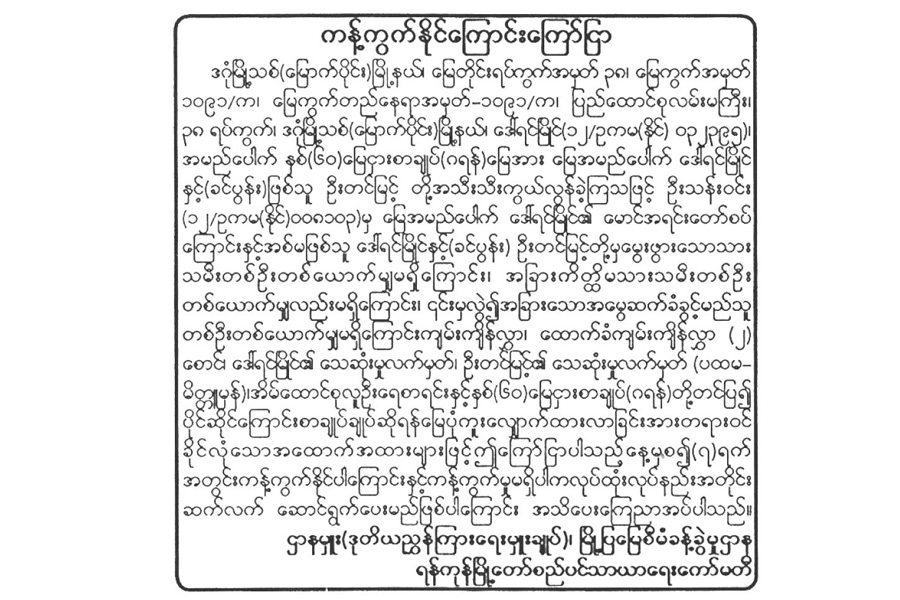 ကန့်ကွက်နိုင်ကြောင်းကြော်ငြာ
ဒဂုံမြို့သစ်(မြောက်ပိုင်း)မြို့နယ်၊ မြေတိုင်းရပ်ကွက်အမှတ် ၃၈၊ မြေကွက်အမှတ်
၁၀၉၁/က၊ မြေကွက်တည်နေရာအမှတ်–၁၀၉၁/က၊ ပြည်ထောင်စုလမ်းမကြီး၊
၃၈ ရပ်ကွက်၊ ဒဂုံမြို့သစ်(မြောက်ပိုင်း)မြို့နယ်၊ ဒေါ်ရင်မြိုင်(၁၂/ဥကမ(နိုင်) ၀၃၂၃၉၅)၊
အမည်ပေါက် နှစ်(၆၀)မြေငှားစာချုပ်(ဂရန်)မြေအား မြေအမည်ပေါက် ဒေါ်ရင်မြိုင်
နှင့်(ခင်ပွန်း)ဖြစ်သူ ဦးတင်မြင့် တို့အသီးသီးကွယ်လွန်ခဲ့ကြသဖြင့် ဦးသန်းဝင်း
(၁၂/ဥကမ(နိုင်)၀၀၈၁၀၃)မှ မြေအမည်ပေါက် ဒေါ်ရင်မြိုင်၏ မောင်အရင်းတော်စပ်
ကြောင်းနှင့်အစ်မဖြစ်သူ ဒေါ်ရင်မြိုင်နှင့်(ခင်ပွန်း) ဦးတင်မြင့်တို့မှမွေးဖွားသောသား
သမီးတစ်ဦးတစ်ယောက်မျှမရှိကြောင်း၊ အခြားကိတ္တိမသားသမီးတစ်ဦး
တစ်ယောက်မျှလည်းမရှိကြောင်း၊ ၎င်းမှလွဲ၍အခြားသောအမွေဆက်ခံခွင့်မည်သူ
တစ်ဦးတစ်ယောက်မျှမရှိကြောင်းကျမ်းကျိန်လွှာ၊ ထောက်ခံကျမ်းကျိန်လွှာ (၂)
စောင်၊ ဒေါ်ရင်မြိုင်၏ သေဆုံးမှုလက်မှတ်၊ ဦးတင်မြင့်၏ သေဆုံးမှုလက်မှတ် (ပထမ–
မိတ္တူမှန်)၊အိမ်ထောင်စုလူဦးရေစာရင်းနှင့်နှစ်(၆၀)မြေငှားစာချုပ်(ဂရန်)တို့တင်ပြ၍
ပိုင်ဆိုင်ကြောင်းစာချုပ်ချုပ်ဆိုရန်မြေပုံကူးလျှောက်ထားလာခြင်းအားတရားဝင်
ခိုင်လုံသောအထောက်အထားများဖြင့်ဤကြော်ငြာပါသည့်နေ့မှစ၍(၇)ရက်
အတွင်းကန့်ကွက်နိုင်ပါကြောင်းနှင့်ကန့်ကွက်မှုမရှိပါကလုပ်ထုံးလုပ်နည်းအတိုင်း
ဆက်လက် ဆောင်ရွက်ပေးမည်ဖြစ်ပါကြောင်း အသိပေးကြေညာအပ်ပါသည်။
ဌာနမှူး(ဒုတိယညွှန်ကြားရေးမှူးချုပ်)၊ မြို့ပြမြေစီမံခန့်ခွဲမှုဌာန
ရန်ကုန်မြို့တော်စည်ပင်သာယာရေးကော်မတီ